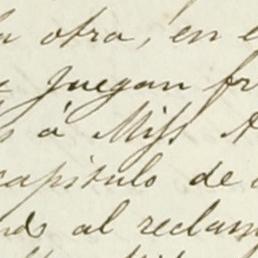 la otra, en e
juegan fr
à Miss A
capitulo de
al reclam